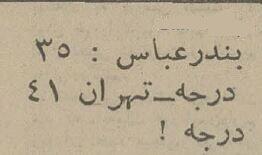 بندرعباس : ۳۵
درجه_تهران ۴۱
درجه !